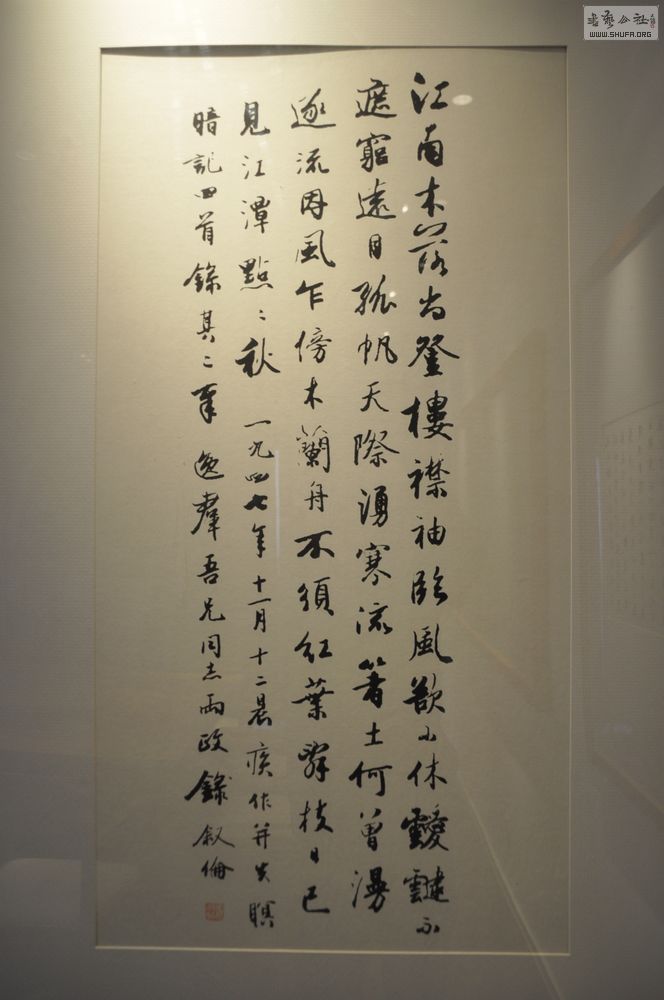 江南木落尚登樓襟袖臨風欲小休靉靆不
遮窮遠目孤帆天際湧寒流箸土何曾漫
逐流因風乍傍木蘭舟不須紅葉辭枝日已
見江潭點〻秋 一九四七年十一月十二晨疾作并失瞑
暗記四首錄其二奉 逸羣吾兄同志兩政 錄 叙倫
書藝公社
WWW.SHUFA.ORG